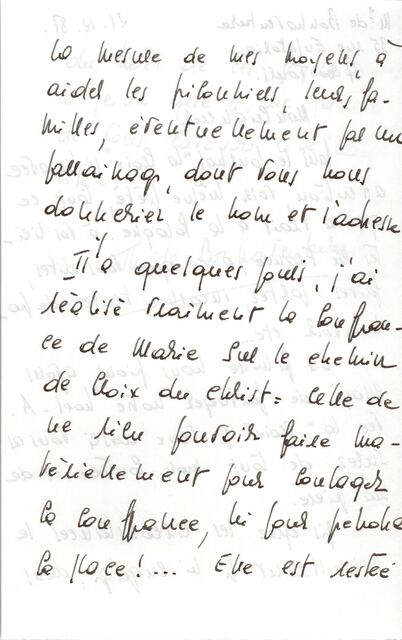 la mesure de mes moyens, à
aider les prisonniers, leurs fa-
milles, éventuellement par un
parrainage, dont vous nous
donneriez le nom et l'adresse
Il y a quelques jours, j'ai
réalisé vraiment la souffran-
ce de Marie sur le chemin
de Croix du Christ = celle de
ne rien pouvoir faire ma-
tériellement pour soulager
la souffrance, ni pour prendre
la place!... Elle est restée